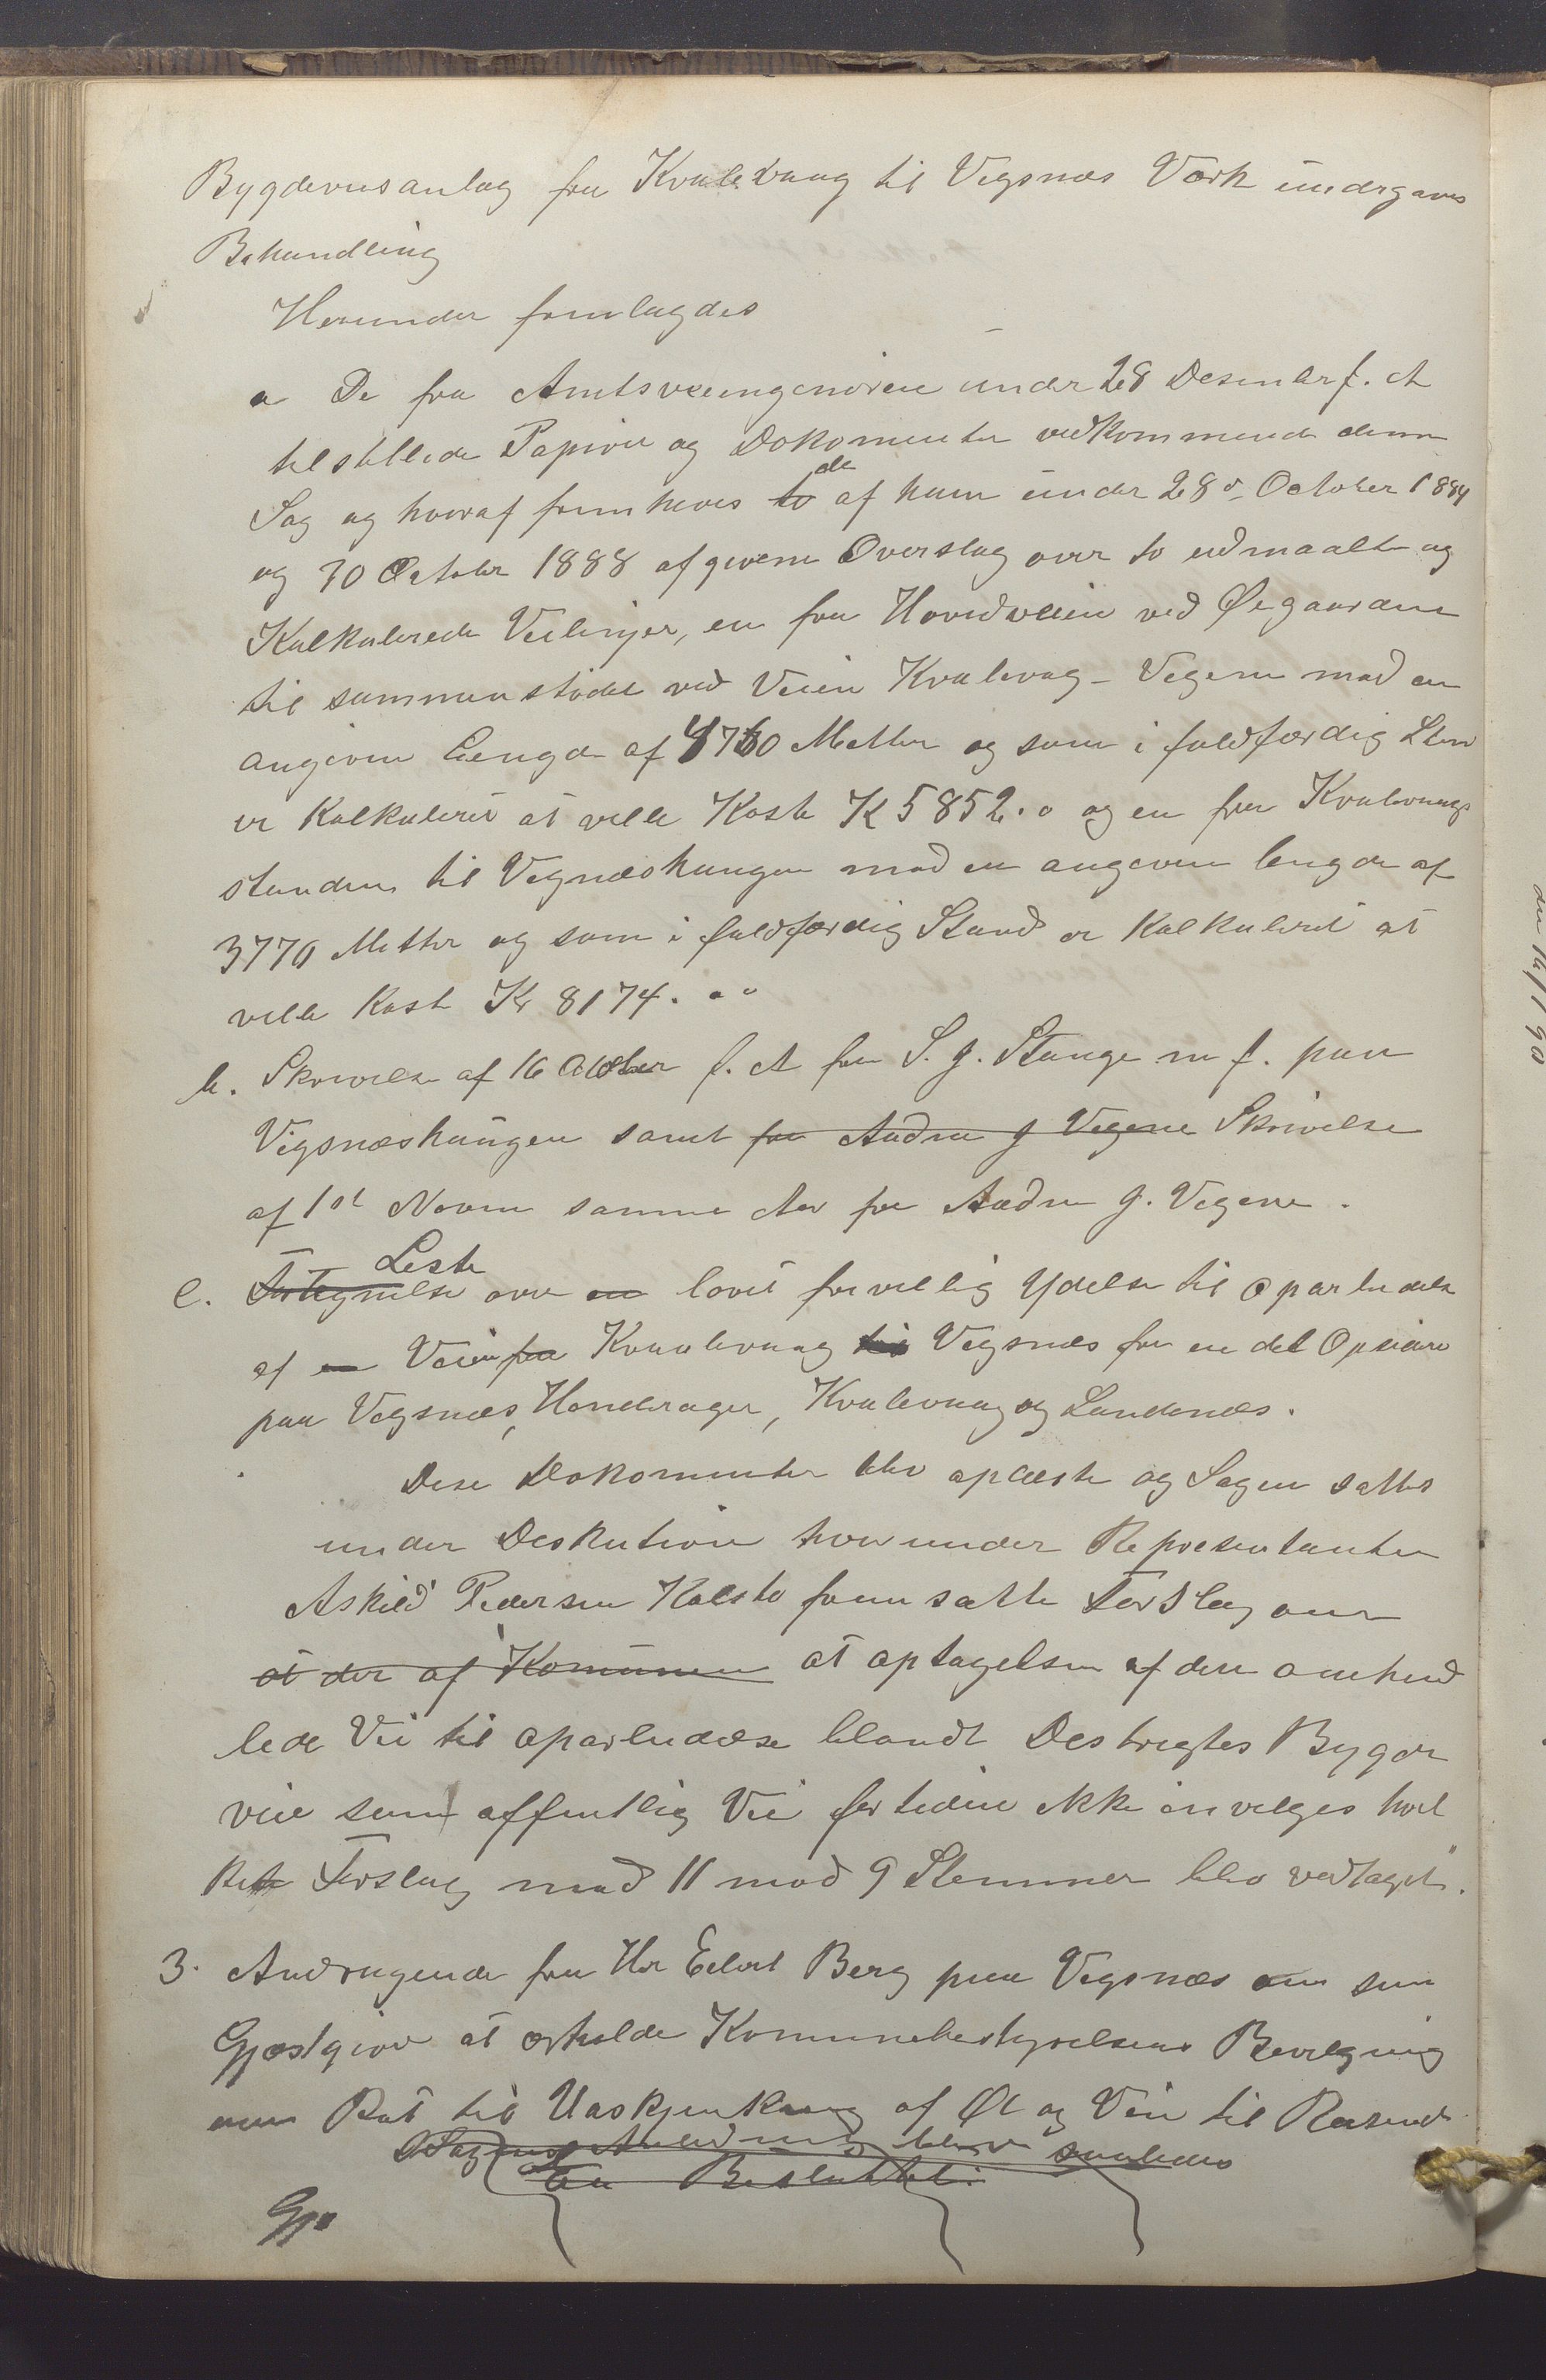 Bygdeveisanlæg fra Kvalevaag til Vigsnæs Værk undergaves
Behandling
Herunder fremlagdes
a De fra Amtsveiingeniøren under 28 Desember f. A
tilstillede Papirer og Dokomenter vedkommende denne
Sag og hvoraf fremheves to de af ham under 28de October 1884
og 30 October 1888 afgivene Overslag over to udmaalte og
Kalkulerede Veilinjer, en fra Hovedveien ved Øigaardene
til sammenstødet ved Veien Kvalevag - Vegene med en
angiven Længde af 4760 Metter og som i fuldfærdig Stan
er Kalkuleret at ville Koste K 5852.0 og en fra Kvalevaag
standen til Vignæshungen med en angiven længde af
3770 Metter og som i fuldfærdig Stand er Kalkuleret at
ville Koste Kr 8174. 00
b. Skrivelse af 16 Oktober f. A fra S. J. Stange m f. paa
Vigsnæshaugen samt fra Andrea J Vegene Skrivelse
af 1st Novem samme Aar fra Andrea J. Vegene.
c. Fortegnelse Liste over en lovet frivellig Ydelse til oparbeidelse
af en Veien fra Kvalevaag til Vigsnæs fra en del Opsidere
paa Vigsnæs, Hønderager, Kvalevaag og Landenæs.
Dise Dokomenter blev oplæste og Sagen sattes
under Deskution hvorunder Repræsentanten
Askild Pedersen Kolstø fremsatte Forslag om
at der af Komunen at optagelsen af den omhand
lede Vei til oparbeidelse blandt Destrigtes Bygde
veie som offentlig Vei for tiden ikke invelges hvil
ket Forslag med 11 mod 9 Stemmer blev vedtaget.
3. Andragende fra Hr Edvard Berg paa Vigsnæs om som
Gjæstgiver at erholde Komunebestyrelsens Bevilgning
om Ret til Udskjenkning af Øl og Vin til Reisende
Sagens Anledning blev saaledes
en Besluttet.
Gja
den 16/1 90